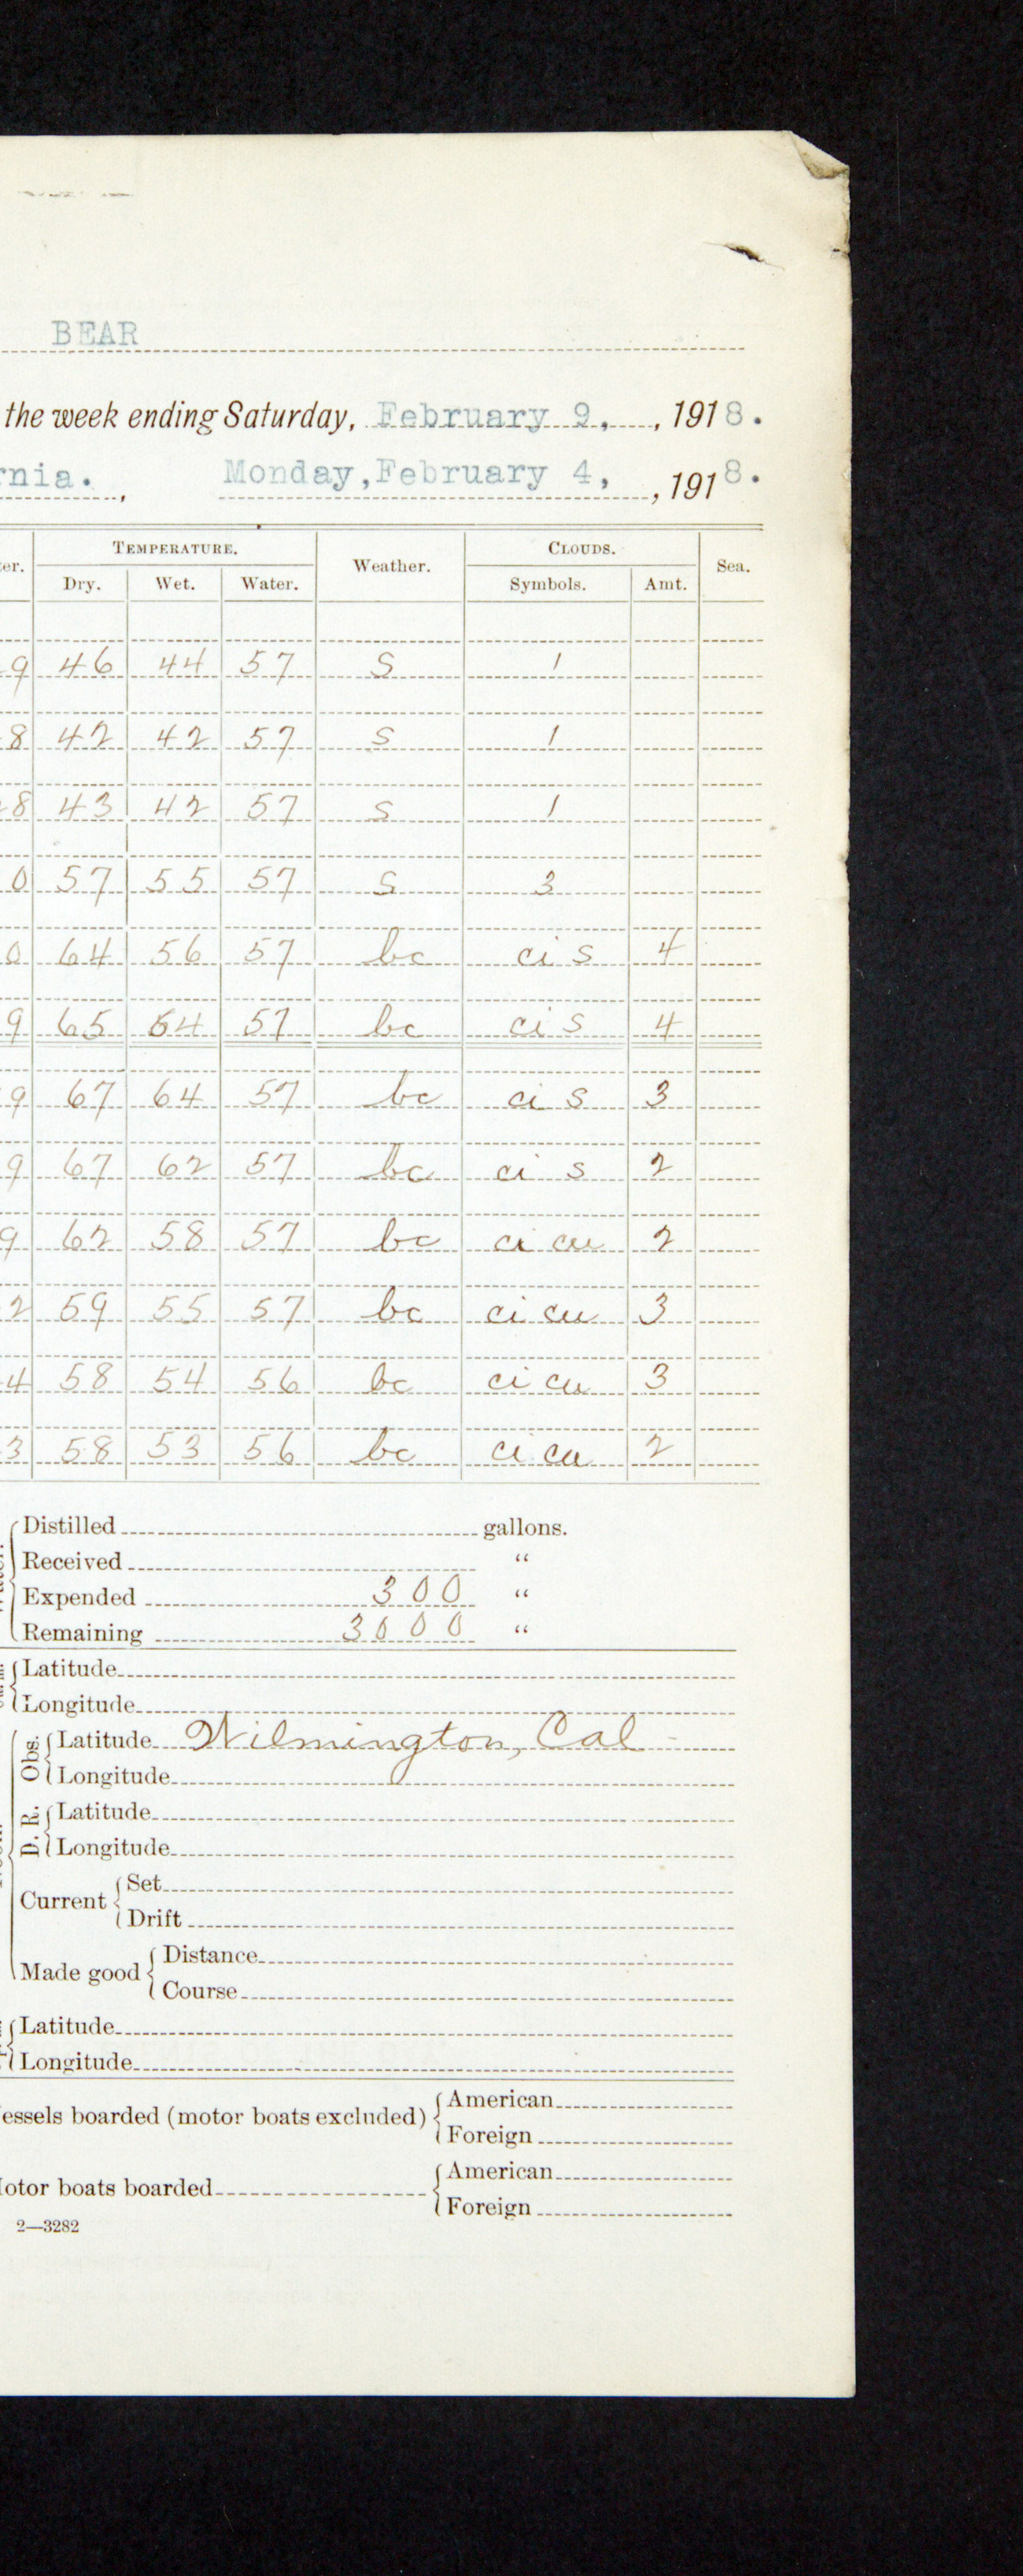 BEAR
the week ending Saturday, February 9, , 1918.
rnia. , Monday, February 4, , 1918.
er. TEMPERATURE. Weather. CLOUDS. Sea.
Dry. Wet. Water. Symbols. Amt.
9 46 44 57 S 1
8 42 42 57 S 1
8 43 42 57 S 1
0 57 55 57 S 3
0 64 56 57 bc ci s 4
9 65 54 57 bc ci s 4
9 67 64 57 bc ci s 3
9 67 62 57 bc ci s 2
9 62 58 57 bc ci cu 2
2 59 55 57 bc ci cu 3
4 58 54 56 bc ci cu 3
3 58 53 56 bc ci cu 2
Distilled gallons.
Received "
Expended 300 "
Remaining 3000 "
Latitude
Longitude
Obs. Latitude Wilmington, Cal
Longitude
D. R. Latitude
Longitude
Current Set
Drift
Made good Distance
Course
Latitude
Longitude
essels boarded (motor boats excluded) American
Foreign
otor boats boarded American
Foreign
2—3282